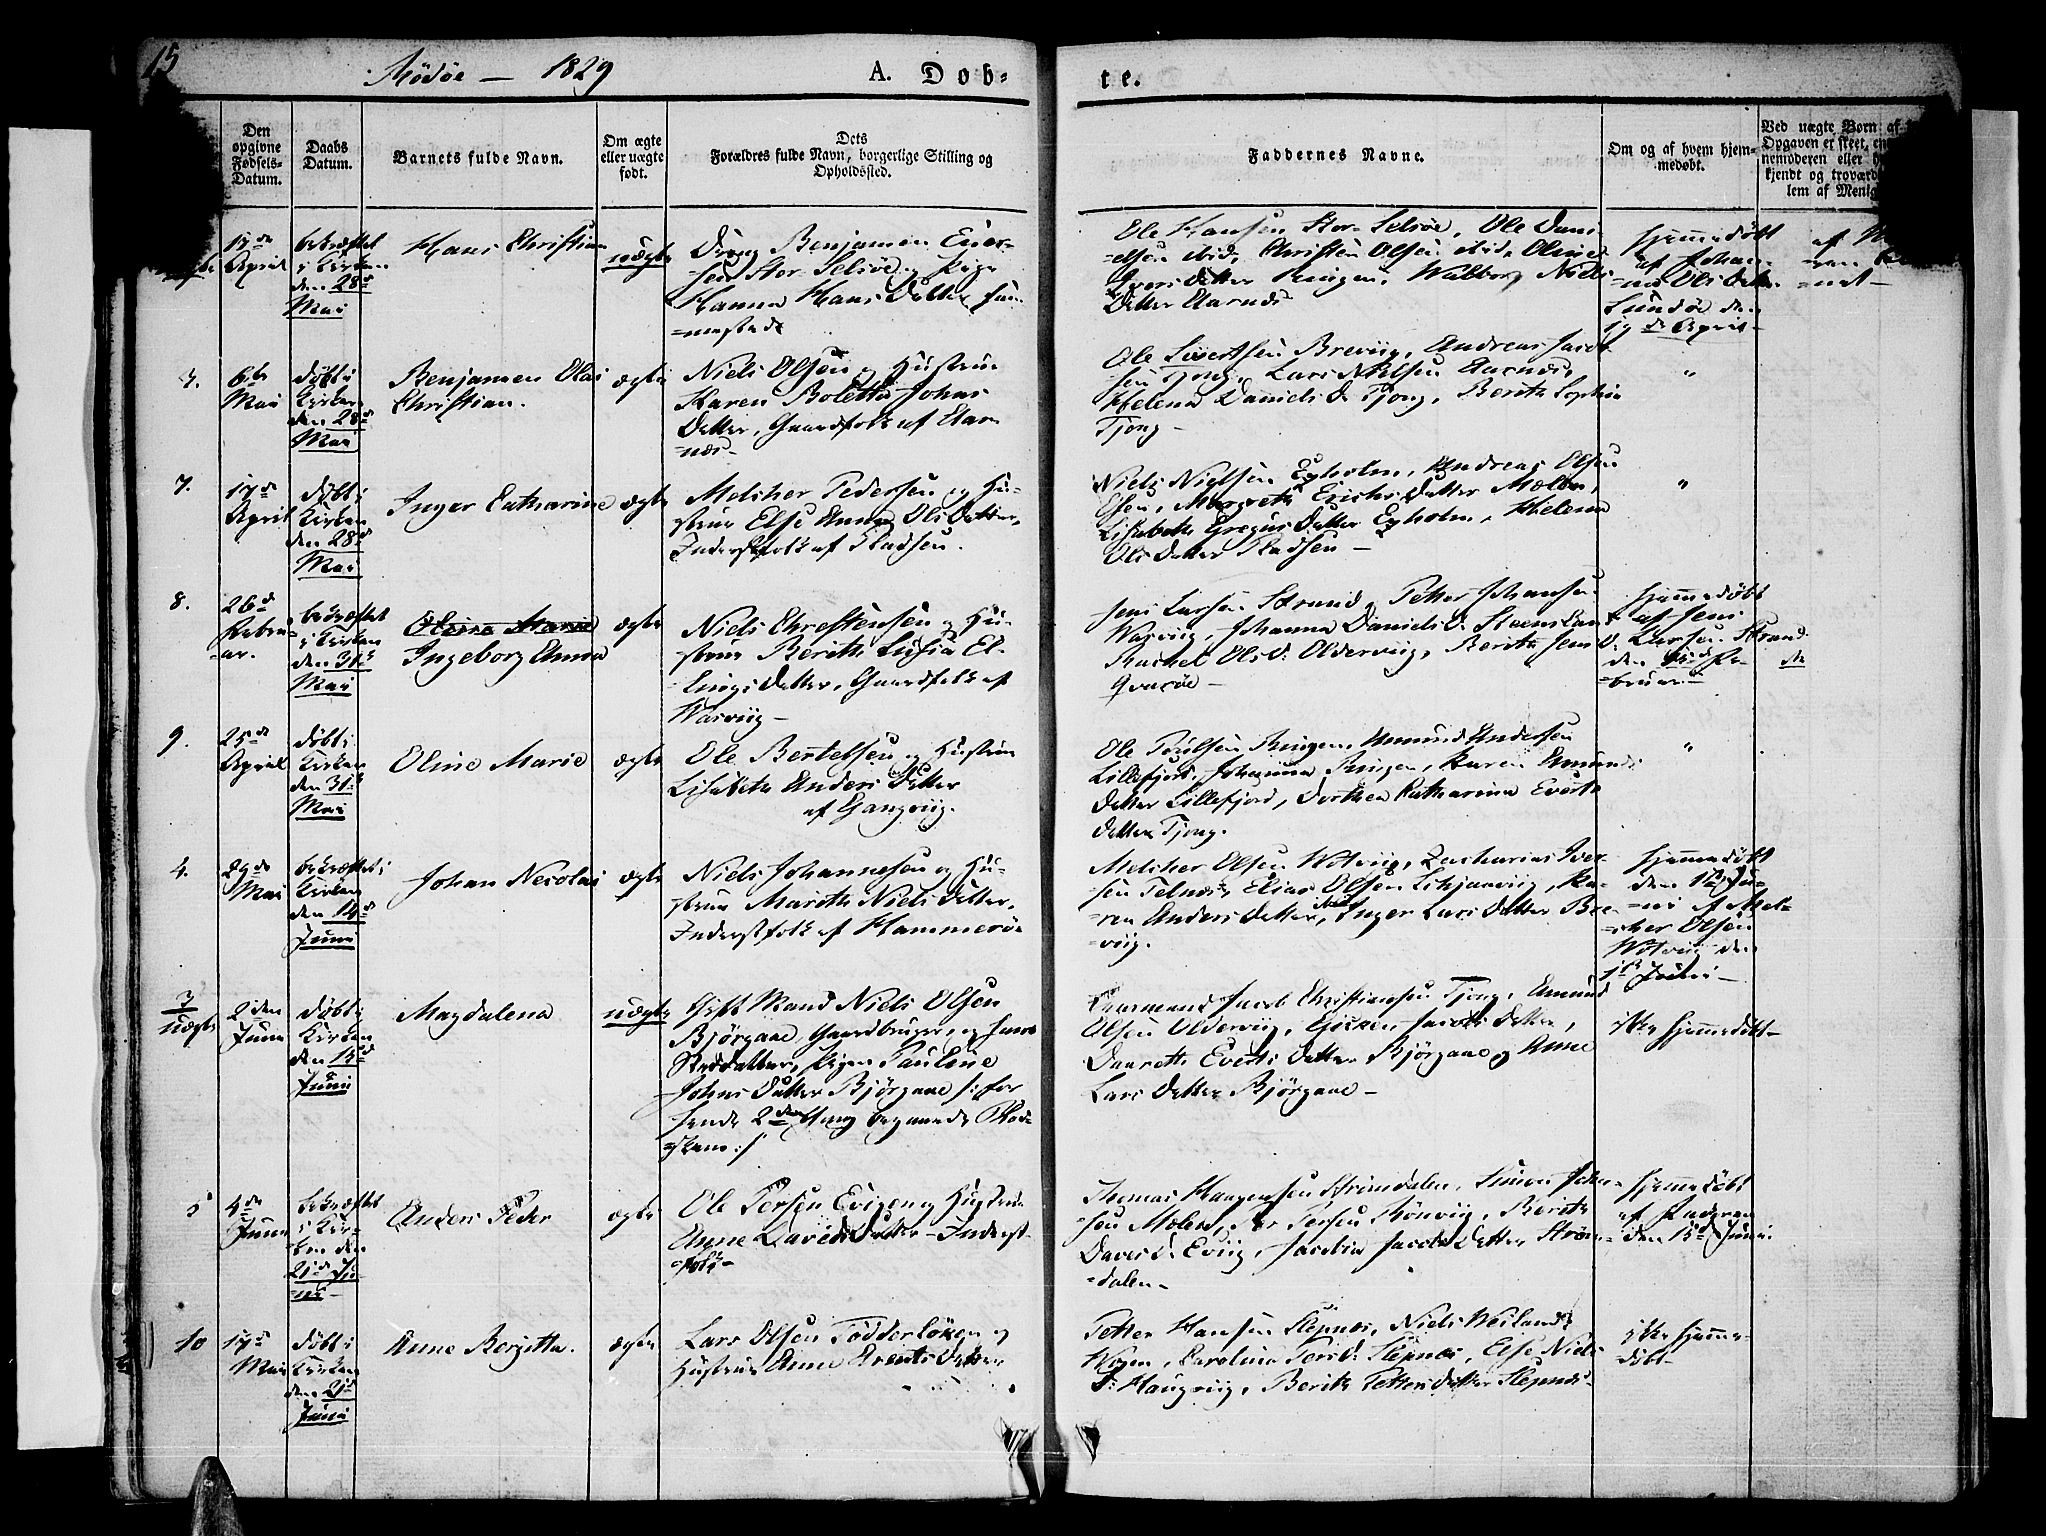 15
Rödöe — 1829
A. Døb-
te.
Den
opgivne
Fødsels-
Datum.
Daabs
Datum.
Barnets fulde Navn.
Om ægte
eller uægte
født.
Dets
Forældres fulde Navn, borgerlige Stilling og
Opholdssted.
Faddernes Navne.
Om og af hvem hjem-
medøbt.
Ved uægte Børn af
Opgaven er skeet, en
nemøderen eller
kjendt og troværd
lem af Menig
17de
April
bekræftet
i Kirken
den 28d
Mai
Hans Christian
uægte
Dreng Benjamin Evert-
sen Stor Selsöe og Pige
Hanna Hans Datter sam-
mesteds
Ole Hansen Stor-Selsöe, Ole Dani-
elsen ibid, Christen Olsen ibid, Oline
Ivers Datter Ringen, Walborg Niels
Datter Aarnæs
Hjemmedöbt
af Johan-
na Ols Datter
Lundöe den
19de April
7.
6te
Mai
döbt i
Kirken
den 28d
Mai
Benjamin Olai
Christian.
ægte
Niels Olsen og Hustrue
Karen Boletta Johns
Datter, Gaardfolk af Aar-
næs
Ole Sivertsen Brevig, Andreas Jacob-
sen Tjong, Lars Nilsen Aarnæs,
Helena Daniels D. Tjong, Berith Sophia
Tjong —
"
7.
17de
April
döbt i
Kirken
den 28d
Mai
Inger Catharine
ægte
Melcher Pedersen og Hu-
strue Else Anna Ols Datter,
Inderstfolk af Pladsen.
Niels Nielsen Esholm, Andreas Olsen
Olsen, Margreth Erichs Datter Mælen,
Lisabeth Gregus Datter Esholm, Helena
Ols Datter Pladsen —
"
8.
26d
Febru-
ar.
bekræftet
i Kirken
den 31te
Mai
Oline Marie
Ingeborg Anna
ægte
Niels Christensen og Hu-
strue Berith Lisia El-
lings Datter, Gaardfolk af
Wasviig —
Jens Larsen Strand, Petter Johansen
Wasviig, Johanna Daniels D. Steensland
Rachel Ols D: Olderviig, Berith Jens D:
Qvaröe —
Hjemmedöbt
af Jens
Larsen Strand
den Fe-
bruar
9.
25de
April
döbt i
Kirken
den 31te
Mai
Oline Marie
ægte
Ole Bertelsen og Hustrue
Lisabeth Anders Datter
af Gangviig.
Ole Poulsen Ringen, Amund Andersen
Lillefjord, Johanna Ringen, Karen Amunds
Datter Lillefjord, Dorthea Catharina Everts
Datter Tjong.
"
4.
29de
Mai
bekræftet i
Kirken
den 14d
Juni
Johan Nicolai
ægte
Niels Johannesen og Hu-
strue Marith Niels Datter,
Inderstfolk af Hammeröe
Melcher Olsen Wotviig, Zacharias Iver-
sen Telnæs, Elias Olsen Selsjarviig, Ka-
ren Anders Datter, Inger Lars Datter Bre-
viig.
Hjemmedöbt
den 1te Ju-
ni af Mel-
cher Olsen
Wotviig den
1te Juni —
7
uægte
2den
Juni
döbt i
Kirken
den 14d
Juni
Magdalena
uægte
Gift Mand Niels Olsen
Björgaae, Gaardbruger, og hans
Steddatter, Pigen Pauline
Johns Datter Björgaae /: for
hende 2den Gang begaaende Blod-
skam :/
Jacob Christiansen Tjong, Amund
Olsen Olderviig, Jacobs Datter,
Daareth Everts Datter Björgaae og Anne
Lars Datter Björgaae —
ikke hjemmedöbt —
5
4de
Juni
bekræftet
i Kir-
ken den
21de Ju-
ni —
Anders Peder
ægte
Ole Persen Eviigen og Hustrue
Anne Davids Datter — Inderst-
folk —
Thomas Haagensen Strömdalen, Simon John-
sen Mælen, Per Persen Rönviig, Berith
Davids D. Eviig, Jacobia Jacobs Datter Ström-
dalen —
Hjemmedöbt
af Faderen
den 15d Juni.
10
17de
Mai
döbt i
Kirken
den 21d
Juni
Anne Bergitta.
ægte
Lars Olsen Födderlöken og
Hustrue Anne Arents Datter
Petter Hansen Slepnæs, Niels Weilands
Wogen, Carolina Pers D: Slepnæs, Else Niels
D: Haugviig, Berith Petters Datter Slepnæs.
ikke hjemme-
döbt —